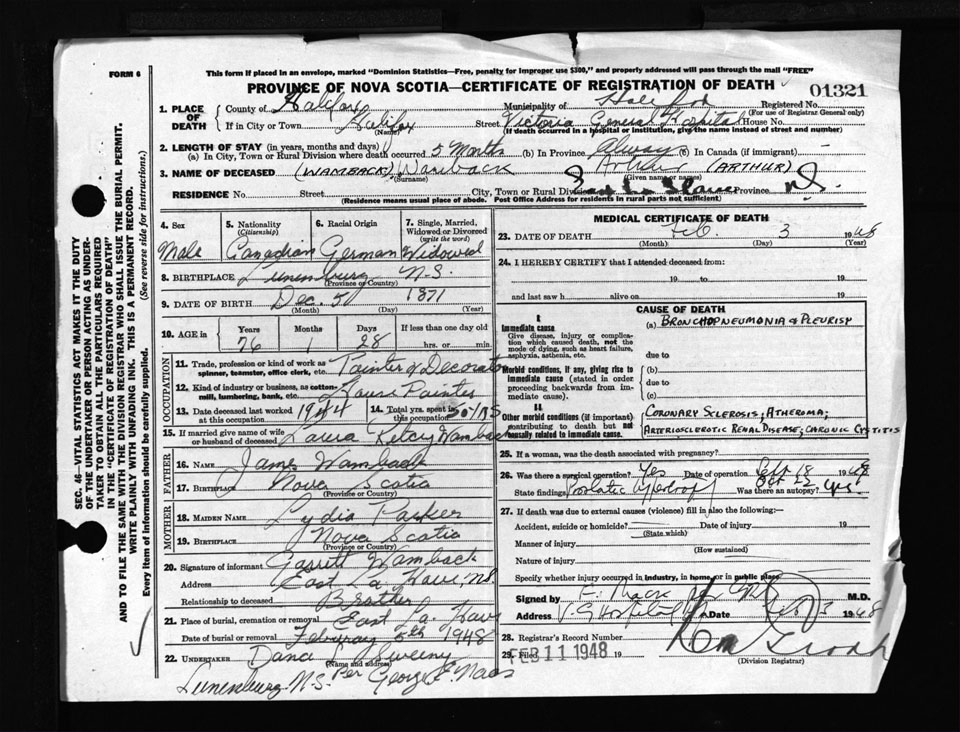 This form if placed in an envelope, marked "Dominion Statistics—Free, penalty for improper use $300," and properly addressed will pass through the mail "FREE"
FORM 6
PROVINCE OF NOVA SCOTIA—CERTIFICATE OF REGISTRATION OF DEATH
01321
1. PLACE OF DEATH
County of Halifax
Municipality of
Registered No.
(For use of Registrar General only)
If in City or Town Halifax
(Name)
Street Victoria General Hospital House No.
(If death occurred in a hospital or institution, give the name instead of street and number)
2. LENGTH OF STAY (in years, months and days)
(a) In City, Town or Rural Division where death occurred 5 Months (b) In Province Always (c) In Canada (if immigrant)
3. NAME OF DECEASED (WAMBACK) Wamback Arthur (ARTHUR)
(Surname) (Given name or names)
RESIDENCE No. Street City, Town or Rural Division East La Have Province N.S.
(Residence means usual place of abode. Post Office Address for residents in rural parts not sufficient)
SEC. 46—VITAL STATISTICS ACT MAKES IT THE DUTY
OF THE UNDERTAKER OR PERSON ACTING AS UNDER-
TAKER TO OBTAIN ALL THE PARTICULARS REQUIRED
IN THE "CERTIFICATE OF REGISTRATION OF DEATH"
AND TO FILE THE SAME WITH THE DIVISION REGISTRAR WHO SHALL ISSUE THE BURIAL PERMIT.
WRITE PLAINLY WITH UNFADING INK. THIS IS A PERMANENT RECORD.
Every item of information should be carefully supplied. (See reverse side for instructions.)
4. Sex
Male
5. Nationality
(Citizenship)
Canadian
6. Racial Origin
German
7. Single, Married,
Widowed or Divorced
(write the word)
Widowed
8. BIRTHPLACE Lunenburg N.S.
(Province or Country)
9. DATE OF BIRTH Dec. 5 1871
(Month) (Day) (Year)
10. AGE in
Years Months Days If less than one day old
76 1 28 hrs. or min.
OCCUPATION
11. Trade, profession or kind of work as
spinner, teamster, office clerk, etc. Painter & Decorator
12. Kind of industry or business, as cotton-
mill, lumbering, bank, etc. House Painter
13. Date deceased last worked at this occupation 1944
14. Total yrs. spent in this occupation 50 YRS
15. If married give name of wife
or husband of deceased Laura Wamback
FATHER
16. NAME James Wamback
17. BIRTHPLACE Nova Scotia
(Province or Country)
MOTHER
18. MAIDEN NAME Lydia Parker
19. BIRTHPLACE Nova Scotia
(Province or Country)
20. Signature of informant Garrett Wamback
Address East La Have, N.S.
Relationship to deceased Brother
21. Place of burial, cremation or removal East La Have
Date of burial or removal February 5th 1948
22. UNDERTAKER Dana L. Sweeny
(Name and address)
Lunenburg N.S. Per George E. Naas
MEDICAL CERTIFICATE OF DEATH
23. DATE OF DEATH Feb. 3 1948
(Month) (Day) (Year)
24. I HEREBY CERTIFY that I attended deceased from:
19 to 19
and last saw h alive on 19
CAUSE OF DEATH
I
Immediate cause
Give disease, injury or complica-
tion which caused death, not the
mode of dying, such as heart failure,
asphyxia, asthenia, etc.
(a) BRONCHOPNEUMONIA & PLEURISY
due to
Morbid conditions, if any, giving rise to
immediate cause (stated in order
proceeding backwards from im-
mediate cause).
(b)
due to
(c)
II
Other morbid conditions (if important)
contributing to death but not
causally related to immediate cause.
CORONARY SCLEROSIS; ATHEROMA;
ARTERIOSCLEROTIC RENAL DISEASE; CHRONIC CYSTITIS
25. If a woman, was the death associated with pregnancy?
26. Was there a surgical operation? Yes Date of operation Sept 18 Oct 22 19
State findings Was there an autopsy? Yes
27. If death was due to external causes (violence) fill in also the following:—
Accident, suicide or homicide? Date of injury 19
(State which)
Manner of injury
(How sustained)
Nature of injury
Specify whether injury occurred in industry, in home, or in public place
Signed by M.D.
Address V.G. Hospital Date Feb 3 1948
28. Registrar's Record Number
29. FEB 11 1948 19
(Division Registrar)